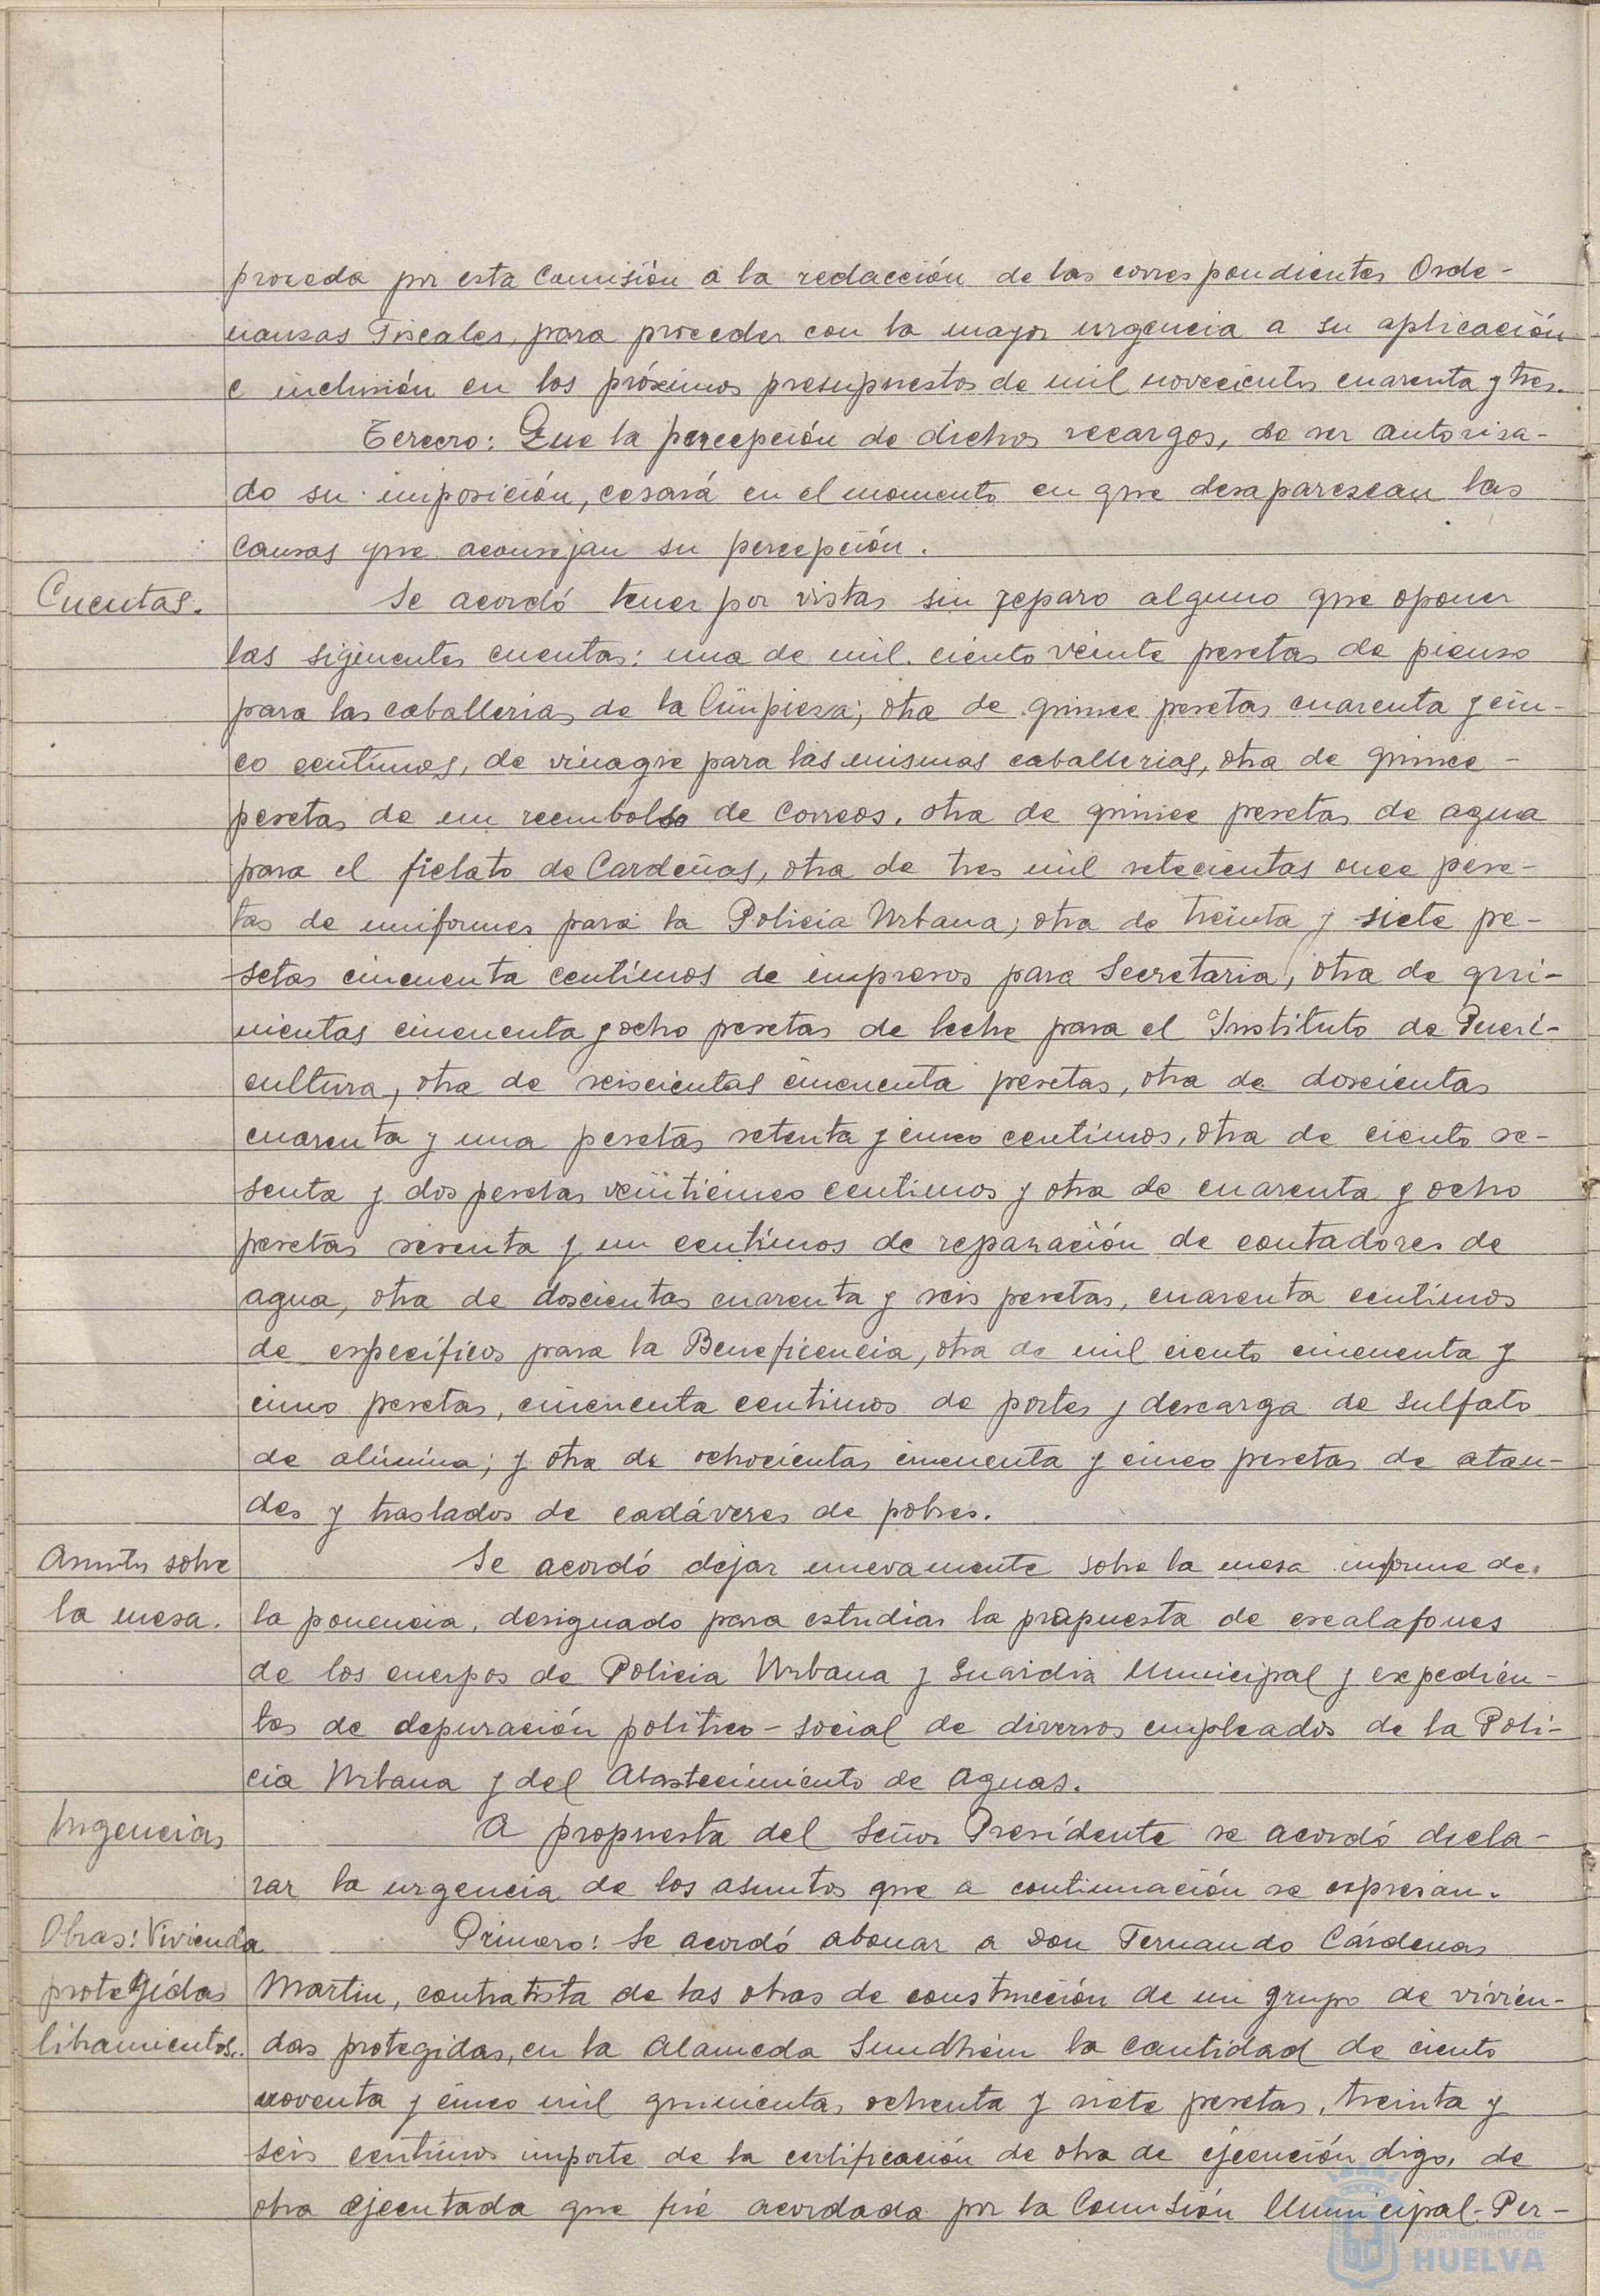 proceda por esta Comisión a la redacción de las correspondientes Orde-
nanzas Fiscales, para proceder con la mayor urgencia a su aplicación
e inclusión en los próximos presupuestos de mil novecientos cuarenta y tres.
Tercero: Que la percepción de dichos recargos, de ser autoriza-
do su imposición, cesará en el momento en que desaparezcan las
causas que aconsejan su percepción.
Cuentas.
Se acordó tener por vistas sin reparo alguno que oponer
las siguientes cuentas: una de mil ciento veinte pesetas de pienso
para las caballerias de la limpieza; otra de quince pesetas cuarenta y cin-
co centimos, de vinagre para las mismas caballerias, otra de quince -
pesetas de un reembolso de Correos, otra de quince pesetas de agua
para el fielato de Cardeñas, otra de tres mil setecientas once pese-
tas de uniformes para la Policia Urbana; otra de treinta y siete pe-
setas cincuenta centimos de impresos para Secretaria, otra de qui-
nientas cincuenta y ocho pesetas de leche para el Instituto de Pueri-
cultura, otra de seiscientas cincuenta pesetas, otra de doscientas
cuarenta y una pesetas setenta y cinco centimos, otra de ciento se-
senta y dos pesetas veinticinco centimos y otra de cuarenta y ocho
pesetas sesenta y un centimos de reparación de contadores de
agua, otra de doscientas cuarenta y seis pesetas, cuarenta centimos
de específicos para la Beneficencia, otra de mil ciento cincuenta y
cinco pesetas, cincuenta centimos de portes y descarga de sulfato
de alúmina; y otra de ochocientas cincuenta y cinco pesetas de ataú-
des y traslados de cadáveres de pobres.
Asuntos sobre
la mesa.
Se acordó dejar nuevamente sobre la mesa informe de
la ponencia, designado para estudiar la propuesta de escalafones
de los cuerpos de Policia Urbana y Guardia Municipal y expedien-
tes de depuración politico-social de diversos empleados de la Poli-
cia Urbana y del Abastecimiento de Aguas.
Urgencias
A propuesta del Señor Presidente se acordó decla-
rar la urgencia de los asuntos que a continuación se expresan.
Obras: Vivienda
protegidas
libramientos.
Primero: Se acordó abonar a Don Fernando Cárdenas
Martin, contratista de las obras de construcción de un grupo de vivien-
das protegidas, en la Alameda Sundhein la cantidad de ciento
noventa y cinco mil quinientas ochenta y siete pesetas, treinta y
seis centimos importe de la certificación de obra de ejecución digo, de
obra ejecutada que fué acordada por la Comisión Municipal Per-
Ayuntamiento de
HUELVA